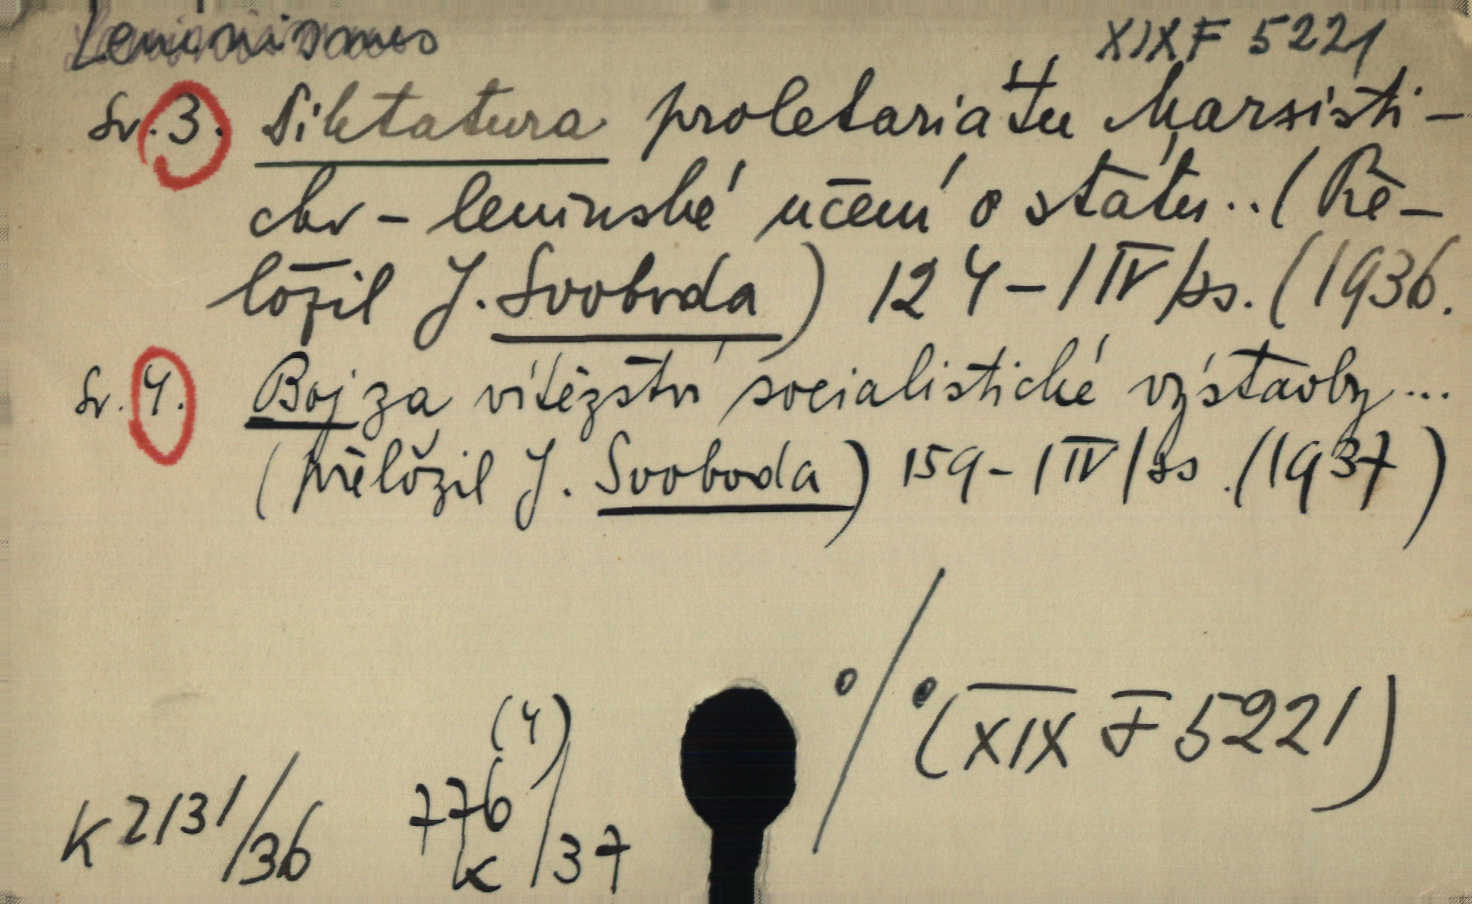 Leninismus
XIX F 5221
Sv. 3. Diktatura proletariátu Marxisti-
cko-leninské učení o státu..(Pře-
ložil J. Svoboda) 124-|IV|ss. (1936.
Sv. 4. Boj za vítězství socialistické výstavby...
(přeložil J. Svoboda) 159-|IV|ss. (1937)
% (XIX F 5221)
(4)
K 2131/36 776/37
K